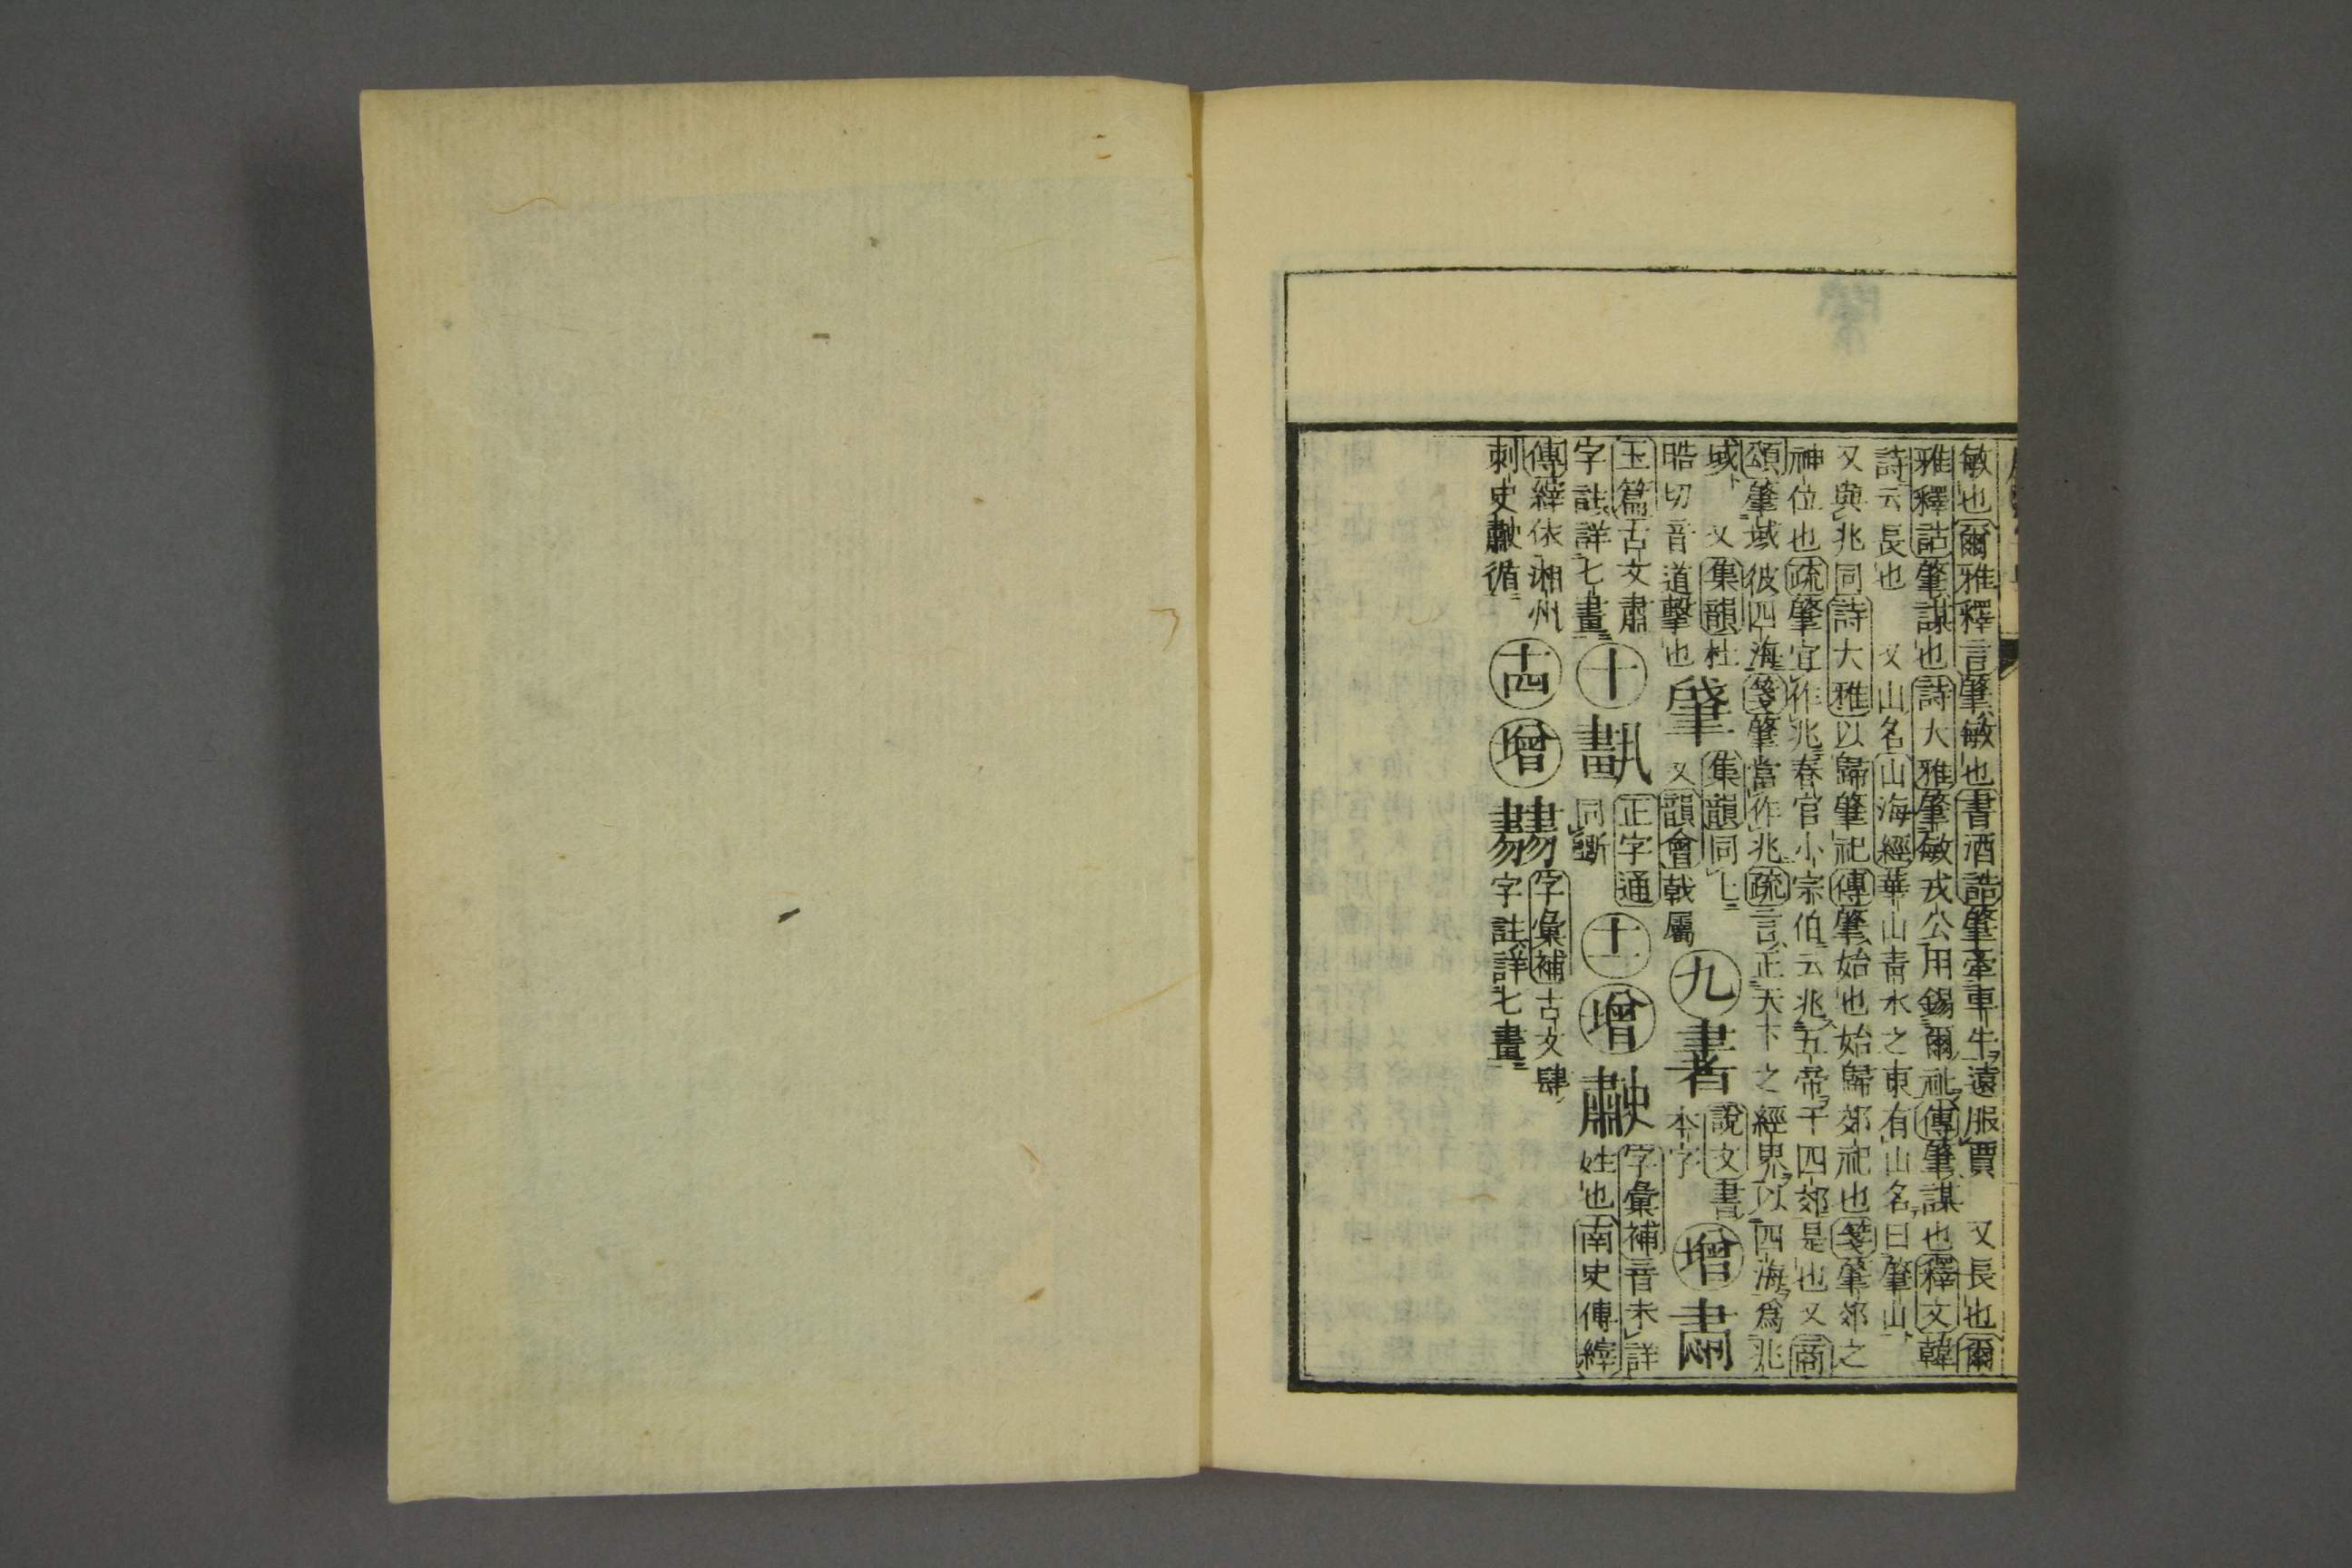 敏也爾雅釋言肇敏也書酒誥肇牽車牛遠服賈 又長也爾
雅釋詁肇謀也詩大雅肇敏戎公用錫爾祉傳肇謀也釋文韓
詩云長也 又山名山海經華山青水之東有山名曰肇山
又與兆同詩大雅以歸肇祀傳肇始也始歸郊祀也箋肇郊之
神位也疏肇宜作兆春官小宗伯云兆五帝于四郊是也又商
頌肇域彼四海箋肇當作兆疏言正天下之經界以四海爲兆
域 又集韻杜
晧切音道擊也
肈
集韻同上
又韻會戟屬
九
說文書
本字
增
玉篇古文肅
字註詳七畫
十
正字通
同斷
十一
增
字彙補音未詳
姓也南史傅縡
傳縡依湘州
刺史循
十四
增
字彙補古文肆
字註詳七畫